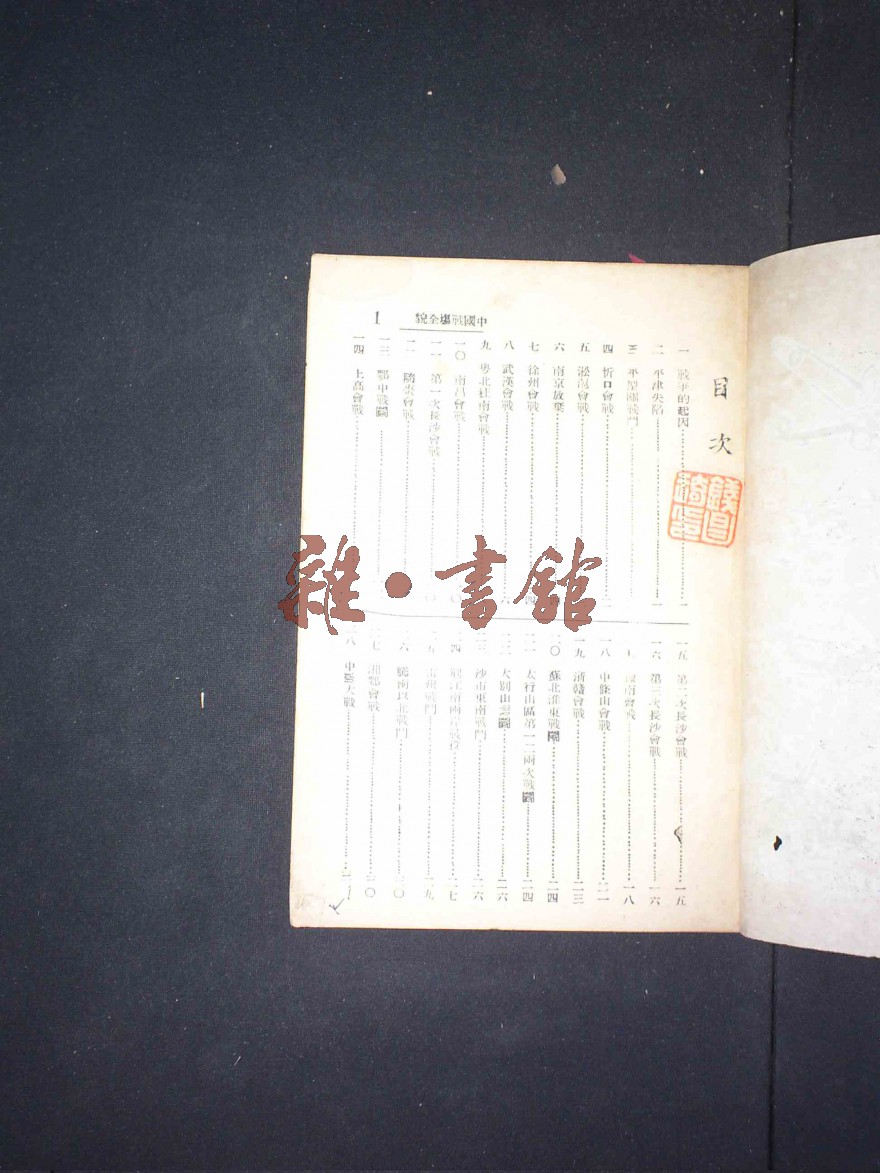 中國戰場全貌
1
目次
一 戰爭的起因 一
二 平津失陷 一
三 平型關戰鬥
四 忻口會戰 二
五 淞滬會戰
六 南京放棄
七 徐州會戰 四
八 武漢會戰 六
九 粵北桂南會戰
一〇 南昌會戰 〇
一一 第一次長沙會戰 〇
一二 隨棗會戰
一三 鄂中戰鬪
一四 上高會戰
一五 第二次長沙會戰 一五
一六 第三次長沙會戰 一六
七 南會戰 一八
一八 中條山會戰 二一
一九 浙贛會戰 二三
二〇 蘇北淮東戰鬪 二四
二一 太行山區第一二兩次戰 二四
二二 大別山 二六
二三 沙市東南戰鬥 二六
二四 江南兩岸戰役 二七
二五 州戰鬥 二九
二六 皖南良北戰鬥 三〇
二七 湘鄂會戰 三〇
二八 中 大戰
雜・書館